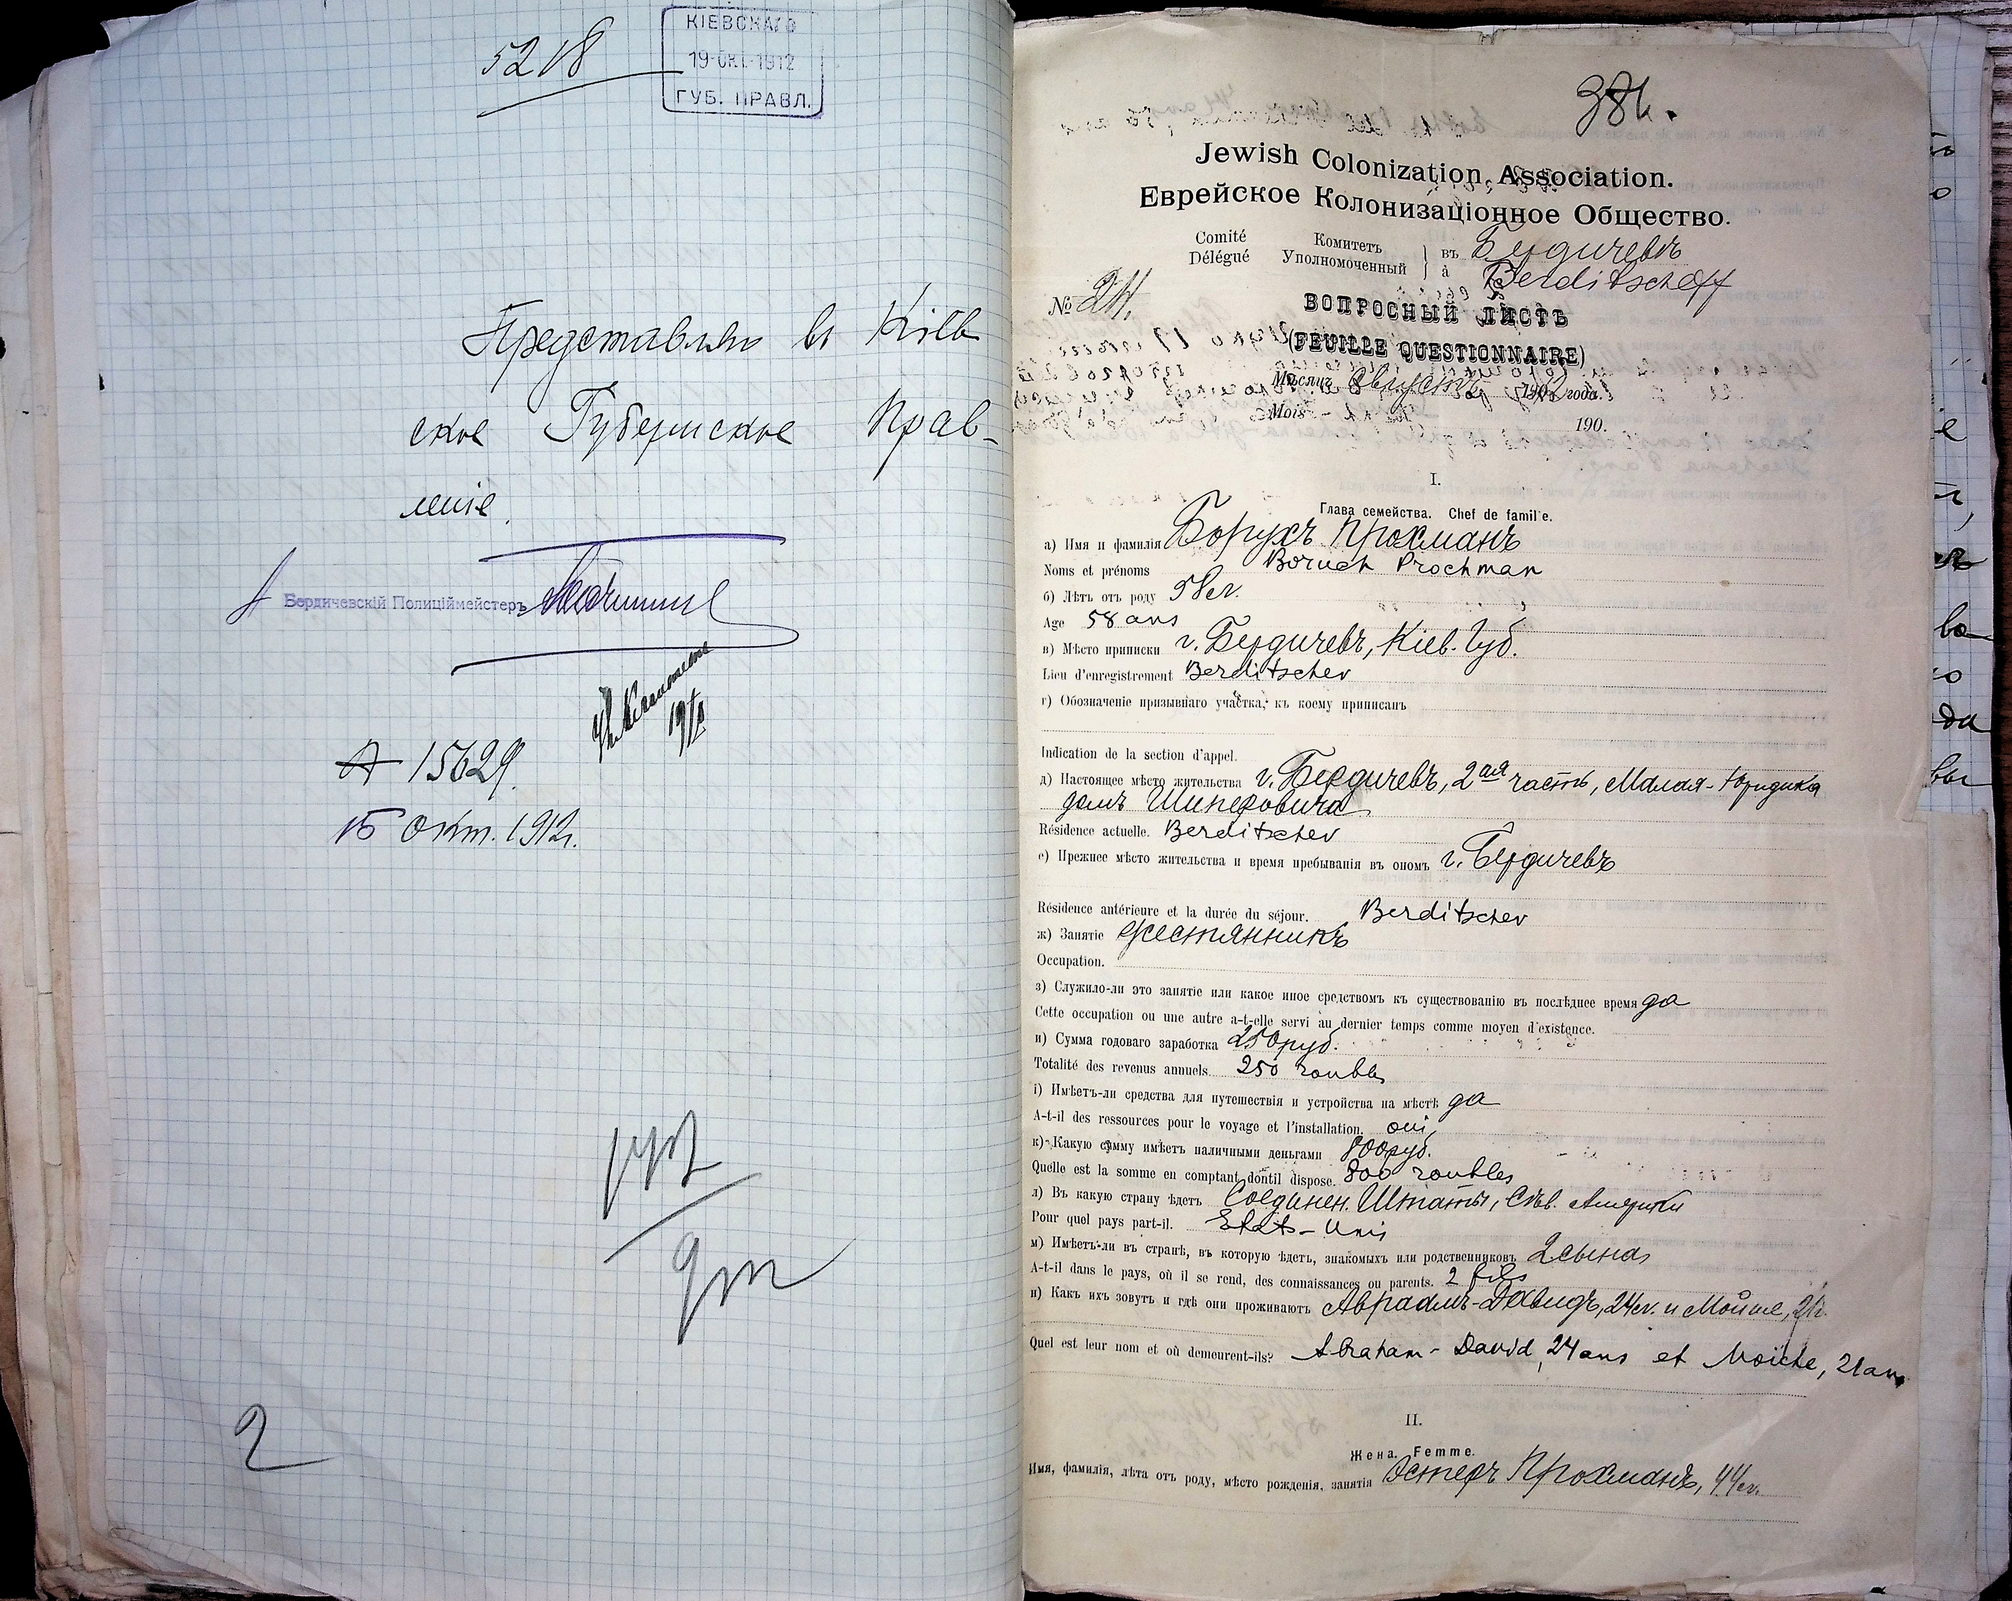 5218
КІЕВСКАГО
19 ОКТ. 1912
ГУБ. ПРАВЛ.
Представляю въ Кіев
ское Губернское Прав-
леніе.
Бердичевскій Полиціймейстеръ
15629
15 окт. 1912 г.
2
Jewish Colonization Association.
Еврейское Колонизаціонное Общество.
Comité Комитетъ въ Бердичевъ
Délégué Уполномоченный à Berditscheff
№ 24.
ВОПРОСНЫЙ ЛИСТЪ
(FEUILLE QUESTIONNAIRE)
Мѣсяцъ Августъ 1912 года.
Mois 190.
I.
Глава семейства. Chef de famille.
а) Имя и фамилія Борухъ Прохманъ
Noms et prénoms Boruch Prochman
б) Лѣтъ отъ роду 58 л.
Age 58 ans
в) Мѣсто приписки г. Бердичевъ, Кіев. Губ.
Lieu d'enregistrement Berditschev
г) Обозначеніе призывнаго участка, къ коему приписанъ
Indication de la section d'appel.
д) Настоящее мѣсто жительства г. Бердичевъ, 2ая часть, Малая-Юридика
домъ Шиперовича
Résidence actuelle. Berditschev
е) Прежнее мѣсто жительства и время пребыванія въ ономъ г. Бердичевъ
Résidence antérieure et la durée du séjour. Berditschev
ж) Занятіе жестянникъ
Occupation.
з) Служило-ли это занятіе или какое иное средствомъ къ существованію въ послѣднее время да
Cette occupation ou une autre a-t-elle servi au dernier temps comme moyen d'existence.
и) Сумма годоваго заработка 250 руб.
Totalité des revenus annuels. 250 roubles
і) Имѣетъ-ли средства для путешествія и устройства на мѣстѣ да
A-t-il des ressources pour le voyage et l'installation. oui,
к) Какую сумму имѣетъ наличными деньгами 800 руб.
Quelle est la somme en comptant dontil dispose. 800 roubles
л) Въ какую страну ѣдетъ Соединен. Штаты, Сѣв. Америки
Pour quel pays part-il. Etats-Unis
м) Имѣетъ-ли въ странѣ, въ которую ѣдетъ, знакомыхъ или родственниковъ 2 сына,
A-t-il dans le pays, où il se rend, des connaissances ou parents. 2 fils
н) Какъ ихъ зовутъ и гдѣ они проживаютъ Авраамъ-Давидъ, 24 л. и Мойше, 21 л.
Quel est leur nom et où demeurent-ils? Abraham-David, 24 ans et Moïche, 21 ans
II.
Жена. Femme.
Имя, фамилія, лѣта отъ роду, мѣсто рожденія, занятія Эстеръ Прохманъ, 44 л.